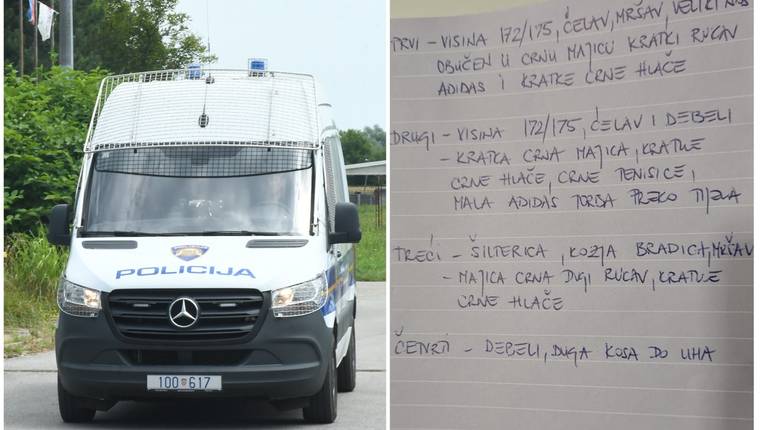 POLICIJA
100 617
PRVI – VISINA 172/175, ĆELAV, MRŠAV, VELIKI NOS
OBUČEN U CRNU MAJICU KRATKI RUCAV
ADIDAS I KRATKE CRNE HLAČE
DRUGI – VISINA 172/175, ĆELAV I DEBELI
– KRATKA CRNA MAJICA, KRATKE
CRNE HLAČE, CRNE TENISICE,
MALA ADIDAS TORBA PREKO TIJELA
TREĆI – ŠILTERICA, KOZJA BRADICA, MRŠAV
– MAJICA CRNA DUGI RUCAV, KRATKE
CRNE HLAČE
ČETVRTI – DEBELI, DUGA KOSA DO UHA